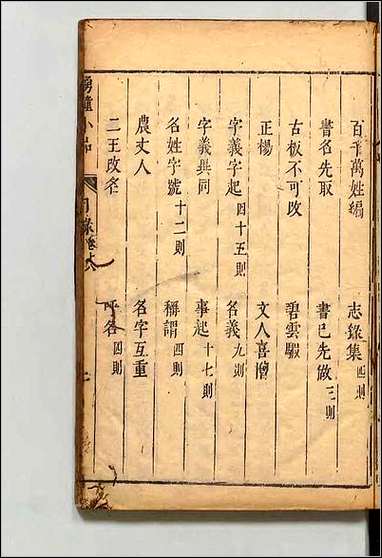 百千萬姓編　志錄集四則
書名先取　書已先做三則
古板不可改　碧雲騢
正楊　文人喜僧
字義字起四十五則　名義九則
字義異同　事起十七則
名姓字號十二則　稱謂四則
農丈人　名字互重
二王改名　呼名四則
湧幢小品　目錄卷十八